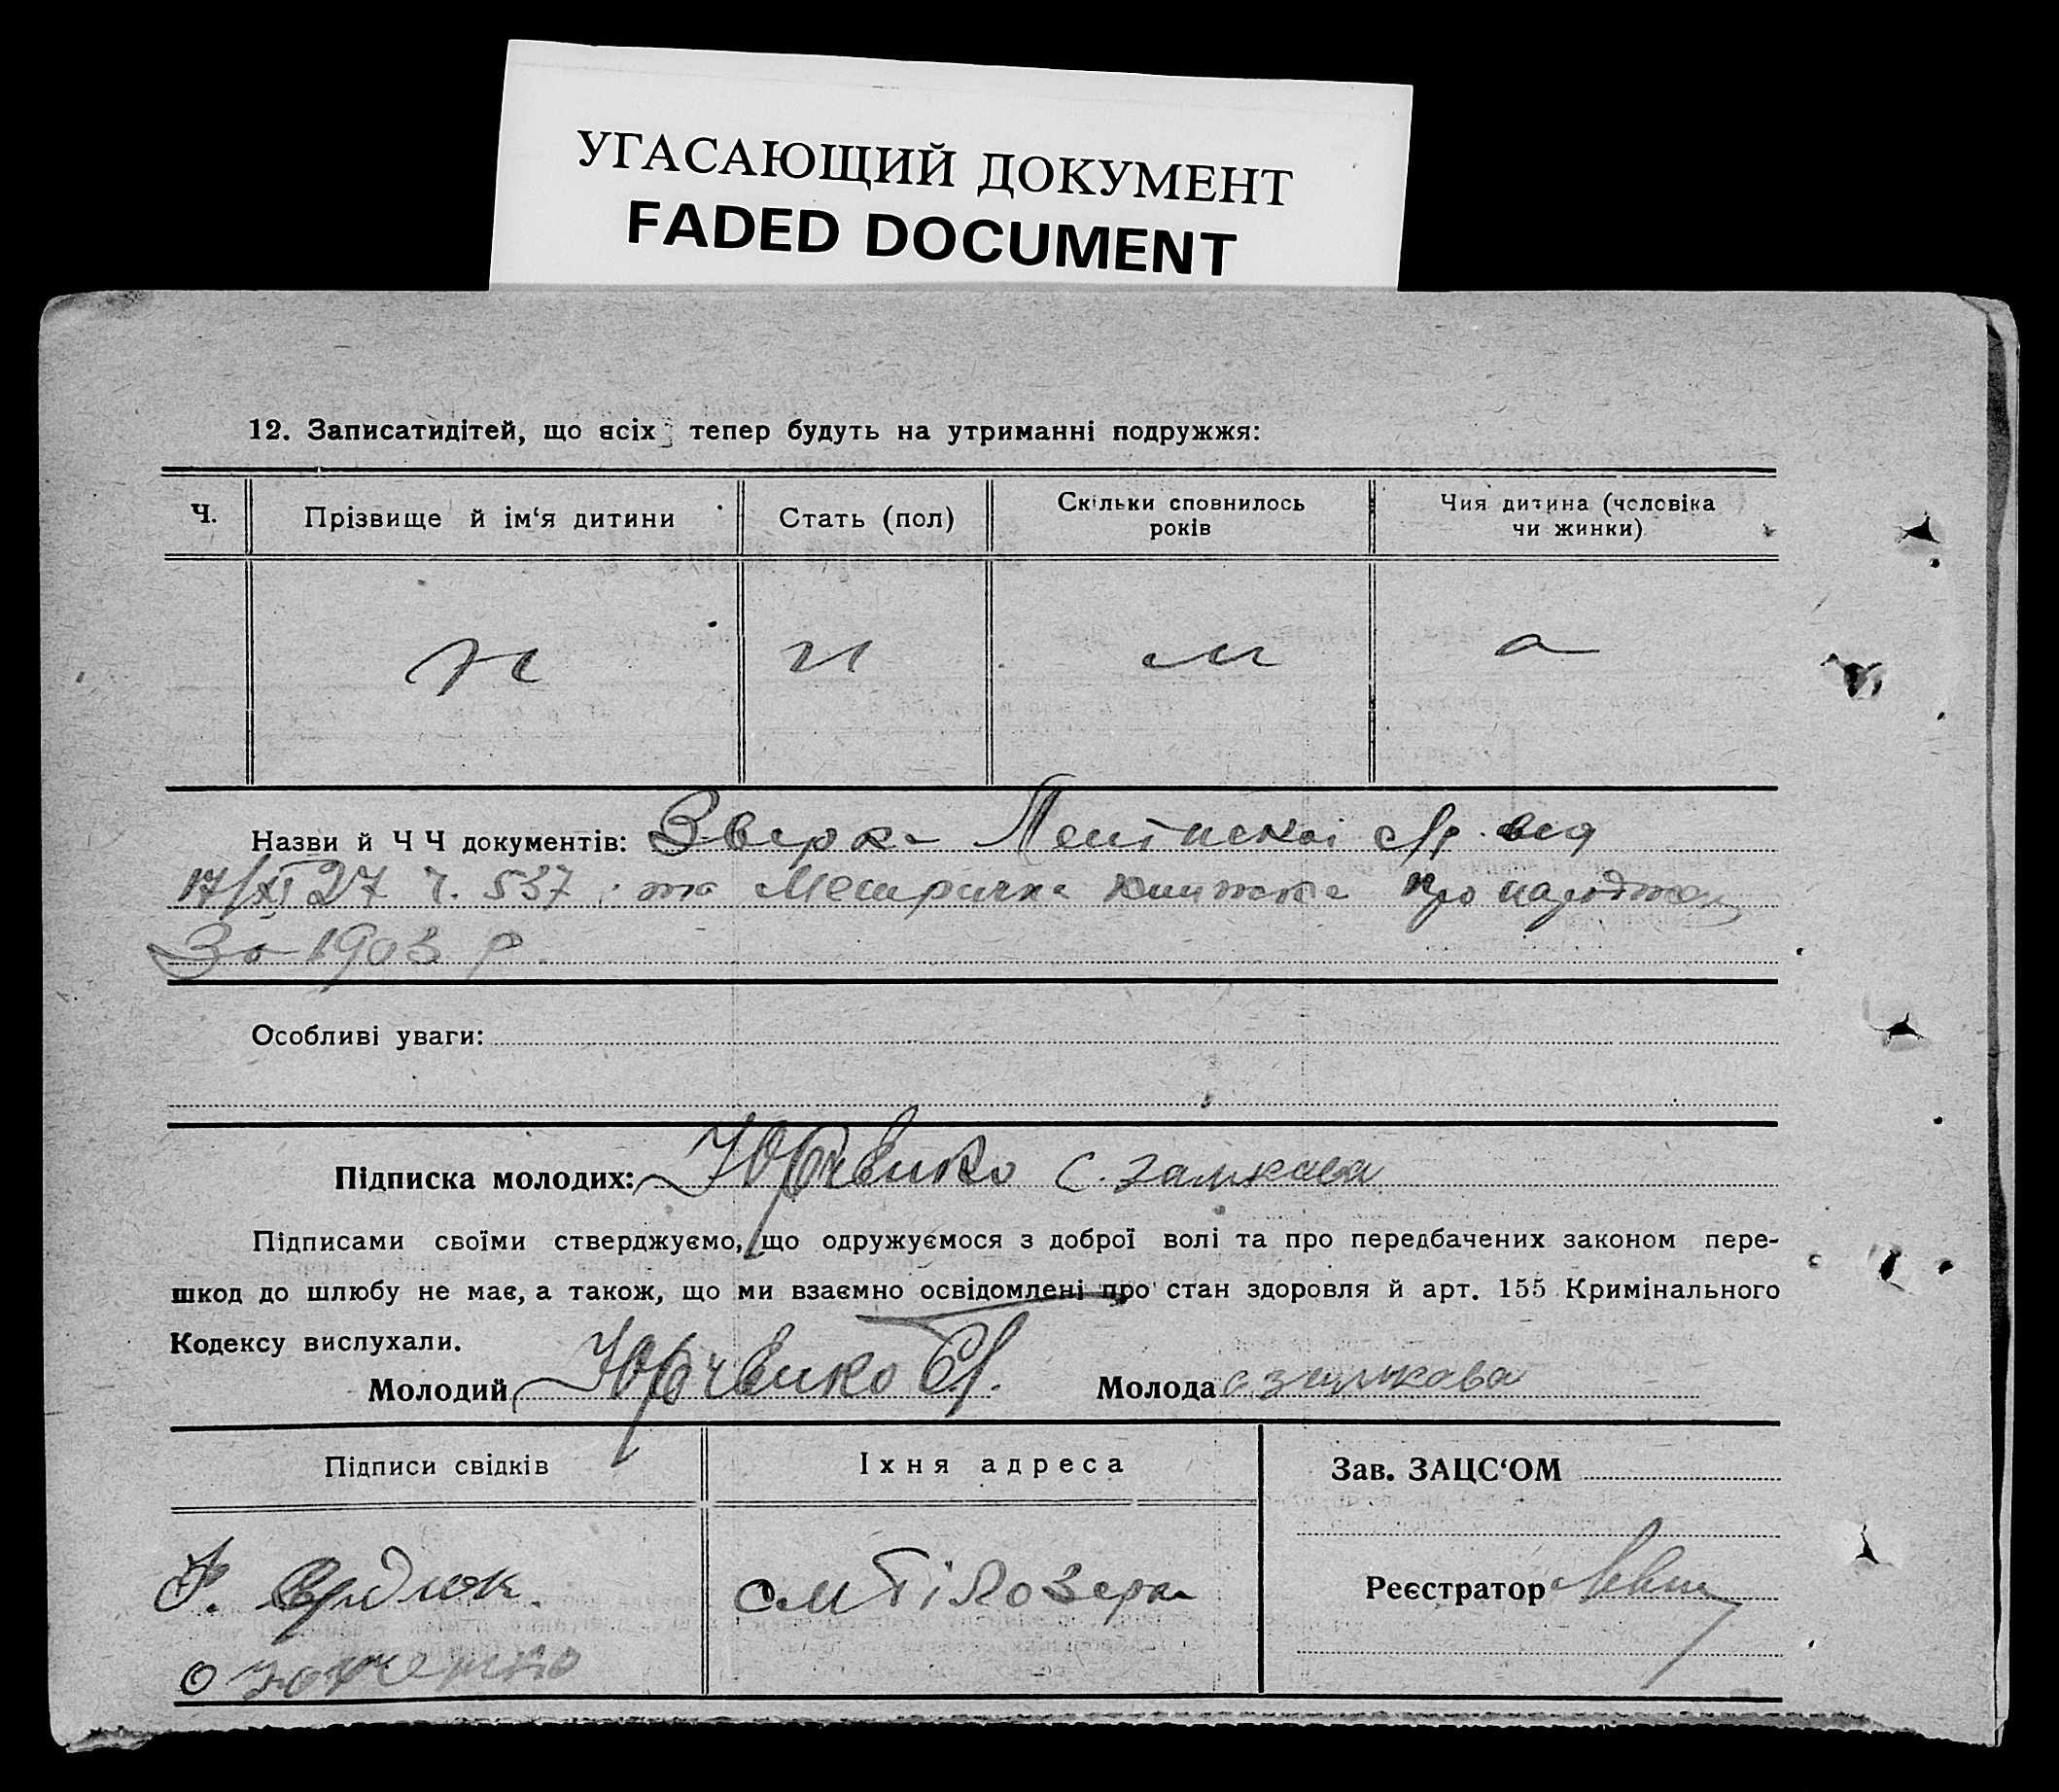 УГАСАЮЩИЙ ДОКУМЕНТ
FADED DOCUMENT
12. Записатидітей, що всіх тепер будуть на утриманні подружжя:
Ч.
Прізвище й ім‘я дитини
Стать (пол)
Скільки сповнилось
років
Чия дитина (чоловіка
чи жинки)
н и м а
Назви й Ч Ч документів:
17/XI 27 ч. 537 та книжка про
За 1903 р.
Особливі уваги:
Підписка молодих: Юрченко С. Замкова
Підписами своїми стверджуємо, що одружуємося з доброї волі та про передбачених законом пере-
шкод до шлюбу не має, а також, що ми взаємно освідомлені про стан здоровля й арт. 155 Кримінального
Кодексу вислухали.
Молодий Юрченко Молода С Замкова
Підписи свідків
Їхня адреса
Зав. ЗАЦС‘ОМ
см
Реєстратор